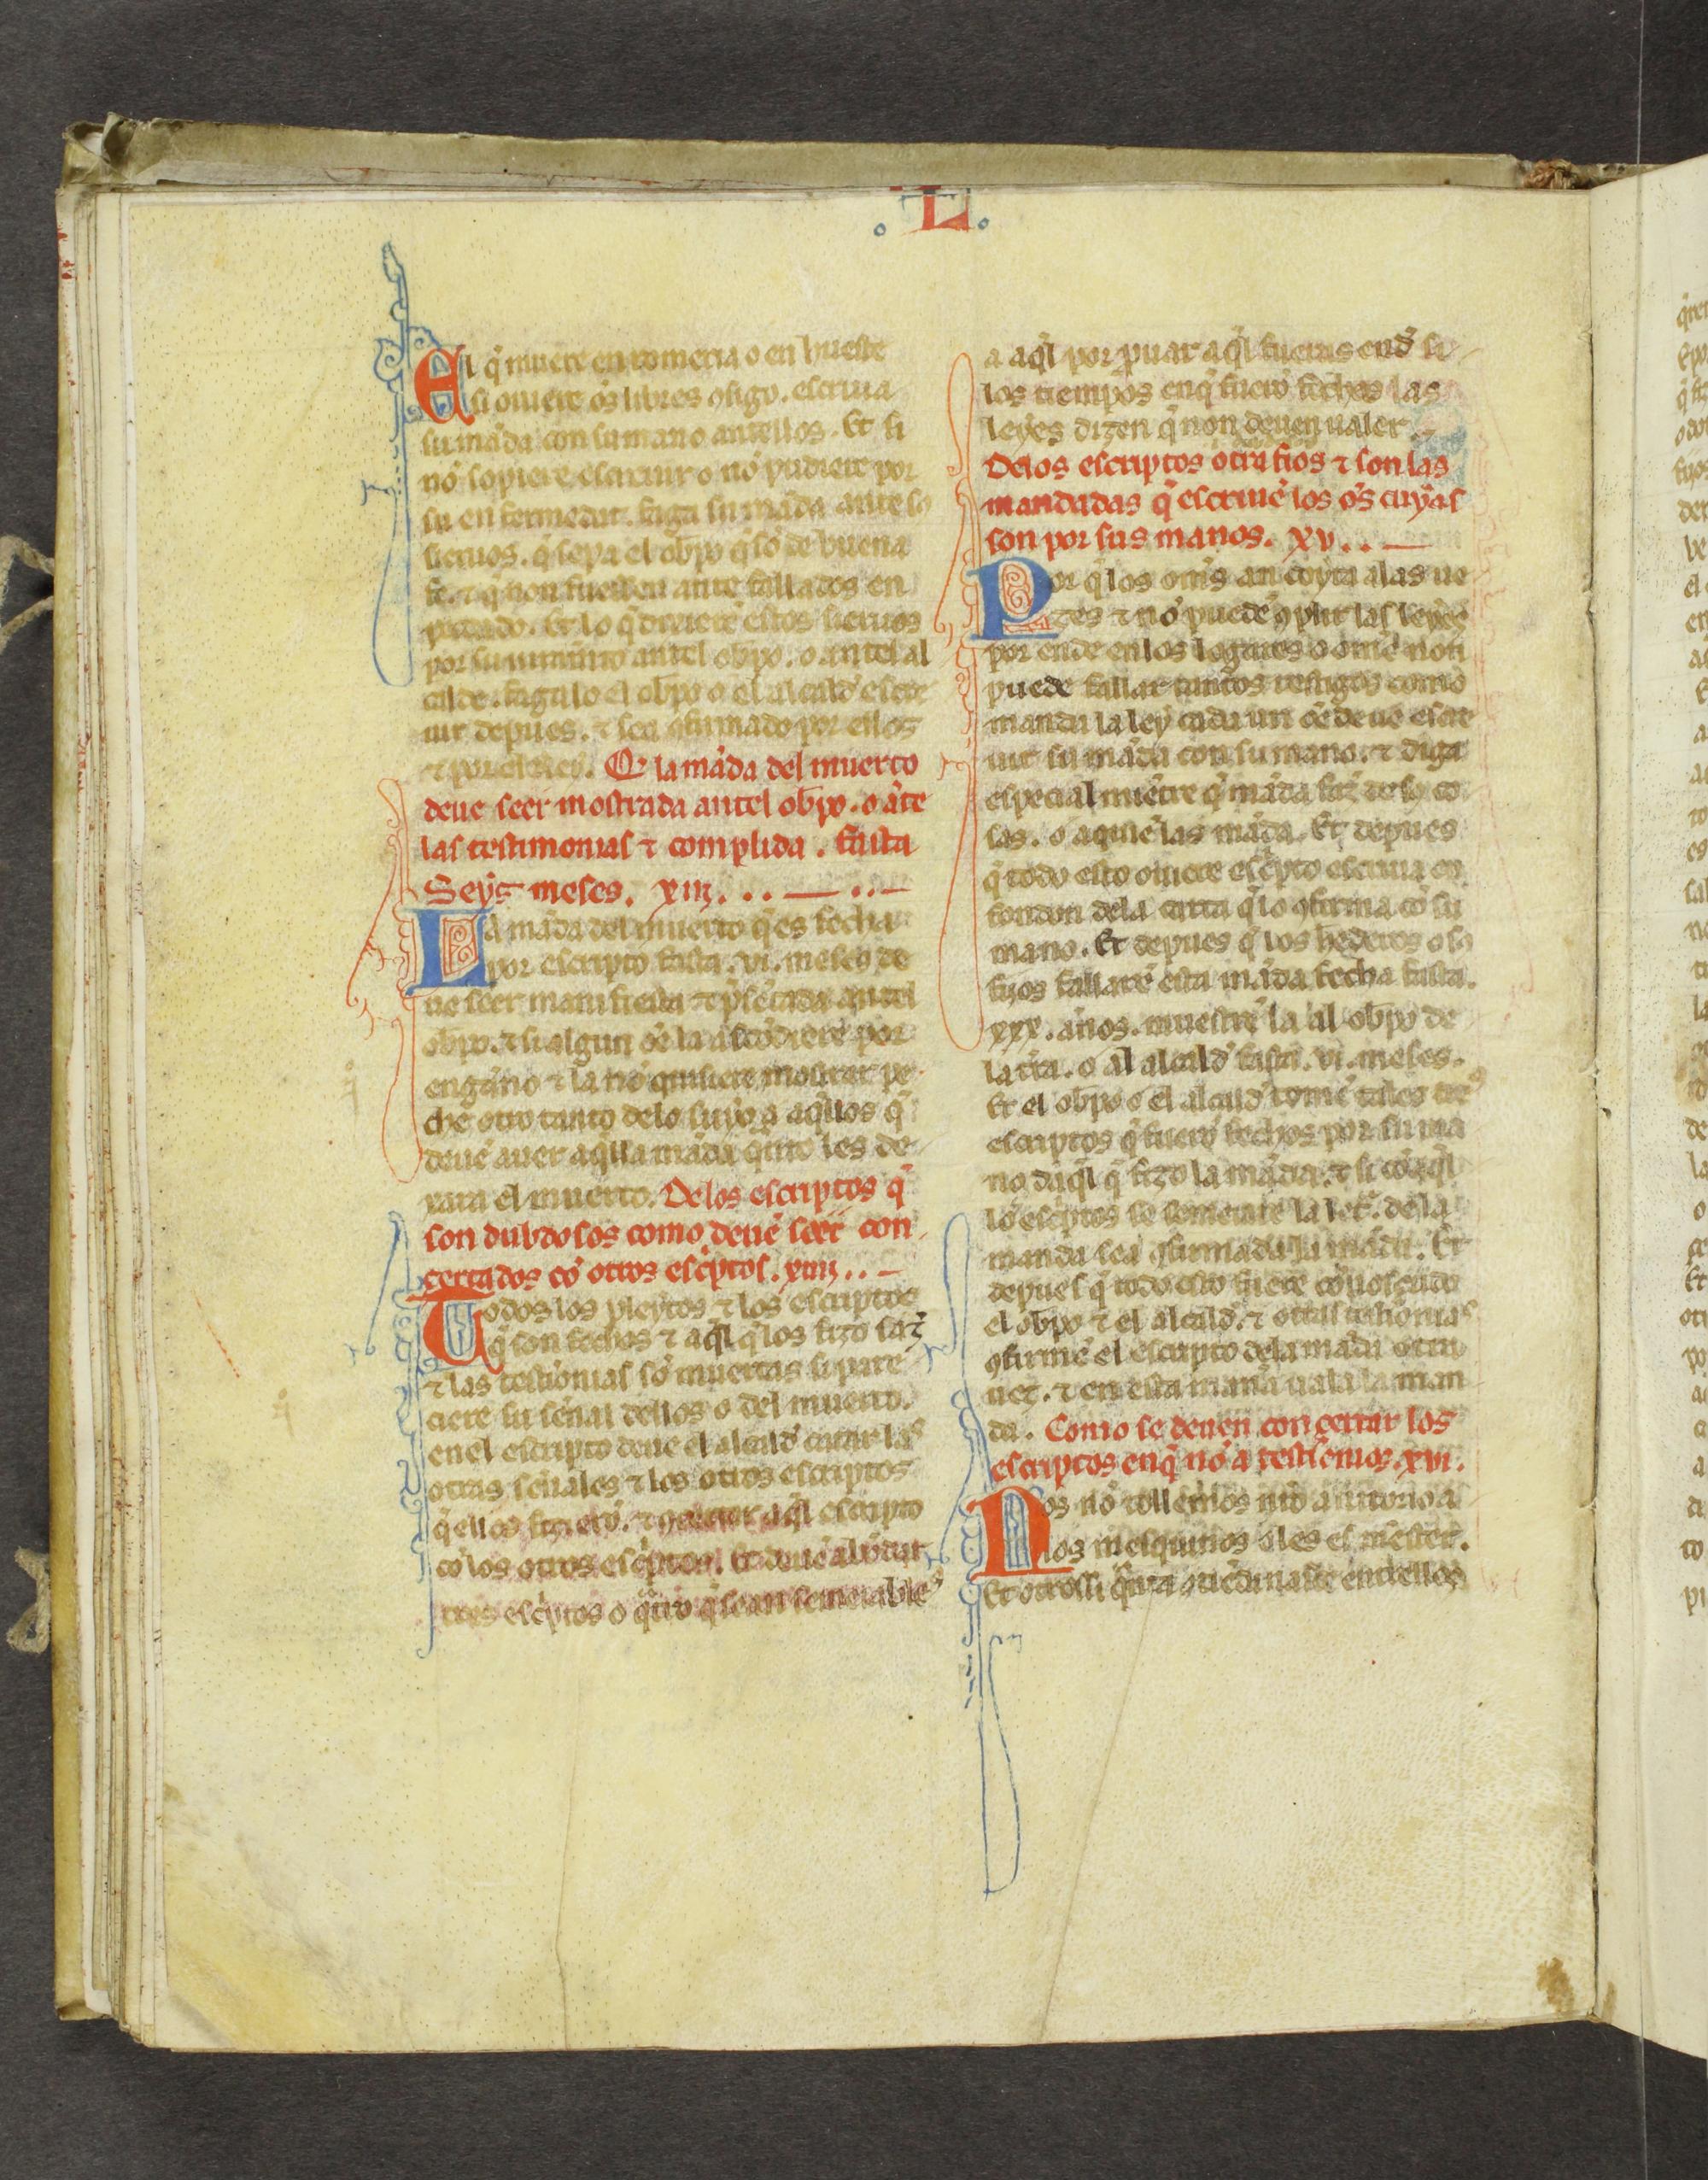 . L .
El q̃ muere en romeria o en hueste
si ouiere oẽs libres cõsigo. escriua
su mãda con su mano antellos. Et si
nõ sopiere escriuir o nõ pudiere por
su enfermedat. faga su mãda ante so
sieruos. q̃ sepa el obpo q̃ so de buena
fe. ⁊ q̃ non fuessen ante fallados en
peccado. Et lo q̃ dixierẽ estos sieruos
por su iuramento antel obpo. o antel al
calde. fagalo el obpo o el alcald escre
uir depues. ⁊ sea cõfirmado por ellos
⁊ por el rey. Q̃ la mãda del muerto
deue seer mostrada antel obpo. o ãte
las testimonias ⁊ complida. fasta
Seys meses. xiij. . . — . . —
La mãda del muerto q̃ es fecha
por escripto fasta. vi. meses de
ue seer manifiesta ⁊ p̃sẽtada antel
obpo. ⁊ si algun oẽ la ascõdiere por
engaño ⁊ la nõ quisiere mostrar pe
che otro tanto delo suyo a aq̃llos q̃
deuẽ auer aq̃lla mãda quãto les de
xara el muerto. Delos escriptos q̃
son dubdosos como deuẽ seer con
certados cõ otros esc̃ptos. xiiij. . —
Todos los pleytos ⁊ los escriptos
q̃ son fechos ⁊ aq̃l q̃ los fizo
⁊ las testimonias sõ muertas si pare
ciere su señal dellos o del muerto.
en el escripto deue el alcald catar las
otras señales ⁊ los otros escriptos
q̃ ellos fiziero. ⁊ aq̃l escripto
cõ los otros esc̃ptos. Et deuẽ abõdar
tres esc̃ptos o q̃tro q̃ sean semeiables
a aq̃l por prouar aq̃l fueras end si
los tiempos enq̃ fuerõ fechos las
leyes dizen q̃ non deuen ualer.
Delos escriptos otra fios ⁊ son las
mandadas q̃ escriuẽ los oẽs cuyas
son por sus manos. xv. . —
Por q̃ los omẽs an coyta alas ue
zes ⁊ nõ puedẽ cõplir las leyes
por ende en los logares o omẽ non
puede fallar tantos testigos como
manda la ley cada un oẽ deue escre
uir su mãda con su mano. ⁊ diga
especial miẽtre q̃ mãda faz de so co
sas. o aquiẽ las mãda. Et depues
q̃ todo esto ouiere esc̃pto escriua en
fondon dela carta q̃ lo cõfirma cõ su
mano. Et depues q̃ los hederos o so
fijos fallarẽ esta mãda fecha fasta.
xxx. años. muestrẽ la al obpo de
la tr̃a. o al alcald fasta. vi. meses.
Et el obpo o el alcald tomẽ tales tres
escriptos q̃ fuerõ fechos por su ma
no daq̃l q̃ fizo la mãda. ⁊ si cõ aq̃l
lo esc̃ptos se semeiare la let̃. dela
manda sea cõfirmada la mãda. Et
depues q̃ todo esto fuere cõnosçudo
el obpo ⁊ el alcald. ⁊ otras testimonias
cõfirmẽ el escripto dela mãda otra
uez. ⁊ en esta mañã uala la man
da. Como se deuen concertar los
escriptos enq̃ nõ a testimonios. xvi.
Nos nõ tollemos
los mesquinos o les es mester.
Et otrossi